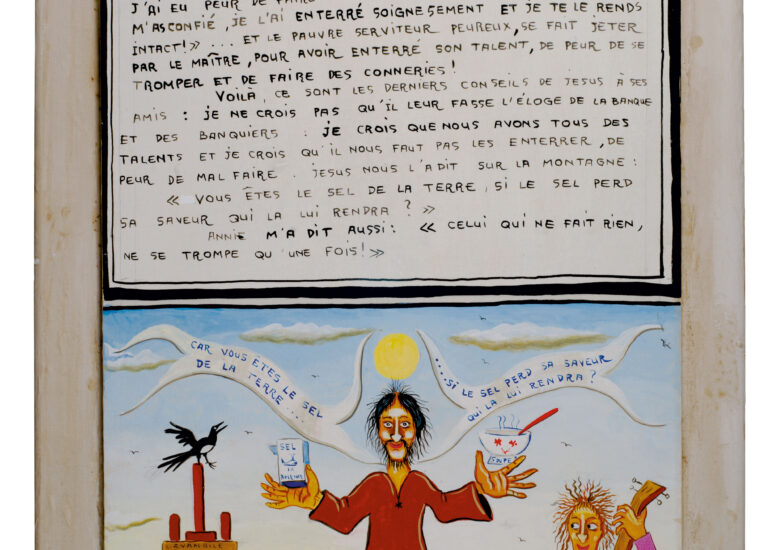 J'AI EU PEUR DE FAIRE
M'AS CONFIÉ, JE L'AI ENTERRÉ SOIGNESEMENT ET JE TE LE RENDS
INTACT!» ... ET LE PAUVRE SERVITEUR PEUREUX, SE FAIT JETER
PAR LE MAÎTRE, POUR AVOIR ENTERRÉ SON TALENT, DE PEUR DE SE
TROMPER ET DE FAIRE DES CONNERIES!
VOILÀ, CE SONT LES DERNIERS CONSEILS DE JESUS À SES
AMIS : JE NE CROIS PAS QU'IL LEUR FASSE L'ÉLOGE DE LA BANQUE
ET DES BANQUIERS : JE CROIS QUE NOUS AVONS TOUS DES
TALENTS ET JE CROIS QU'IL NOUS FAUT PAS LES ENTERRER, DE
PEUR DE MAL FAIRE. JESUS NOUS L'A DIT SUR LA MONTAGNE :
« VOUS ÊTES LE SEL DE LA TERRE, SI LE SEL PERD
SA SAVEUR QUI LA LUI RENDRA ? »
ANNIE M'A DIT AUSSI : « CELUI QUI NE FAIT RIEN,
NE SE TROMPE QU'UNE FOIS! »
CAR VOUS ÊTES LE SEL
DE LA TERRE ...
...SI LE SEL PERD SA SAVEUR
QUI LA LUI RENDRA ?
SEL
SOUPE